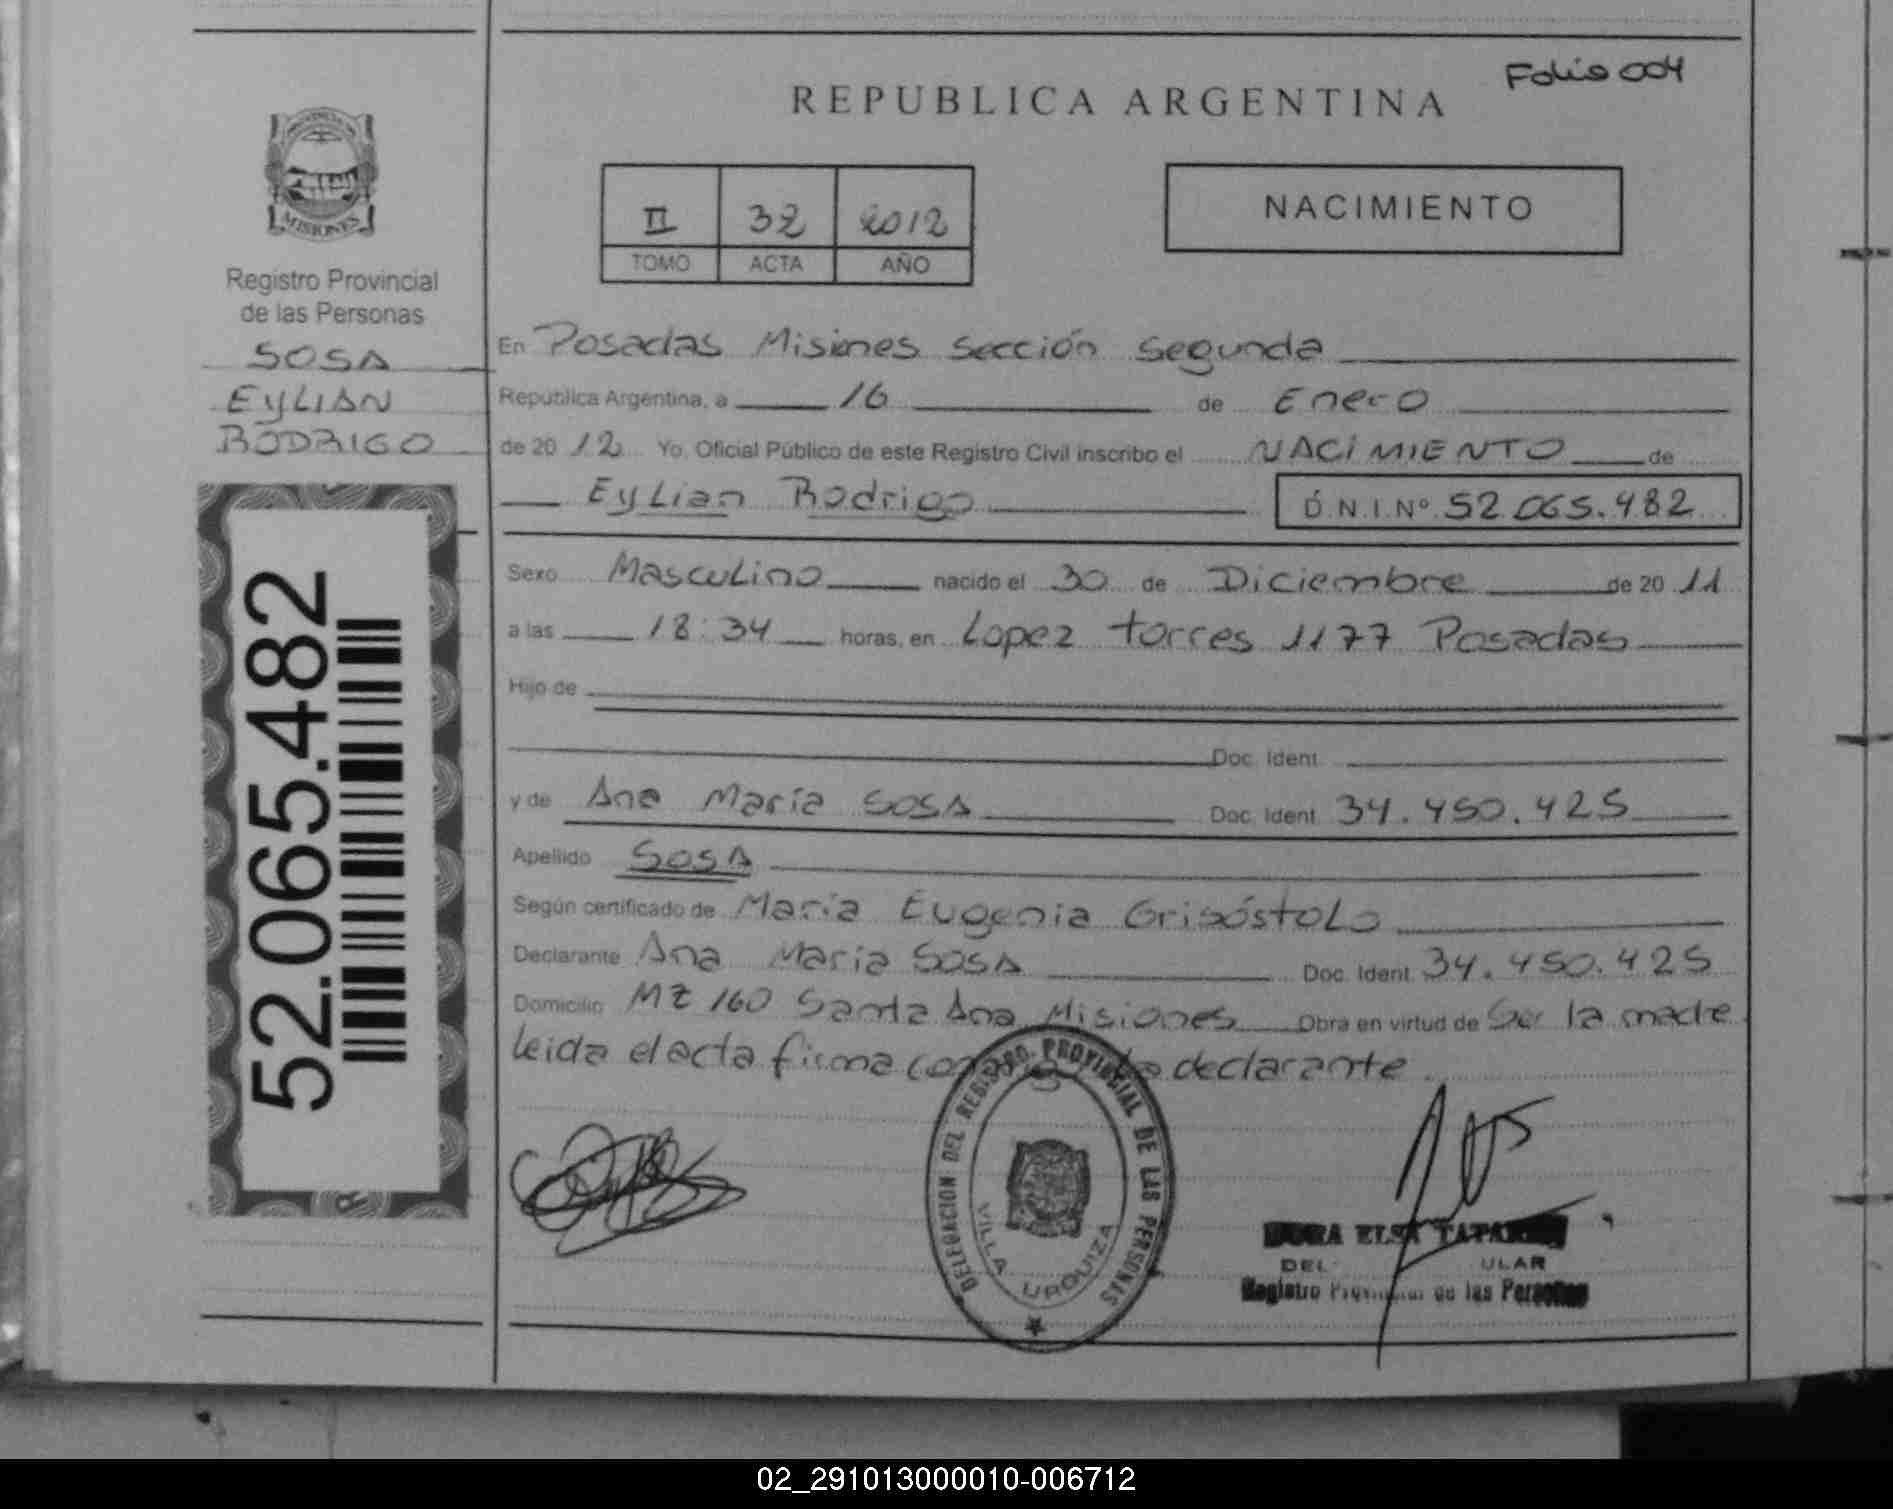 Folio 004
REPUBLICA ARGENTINA
PROVINCIA DE
MISIONES
Registro Provincial
de las Personas
SOSA
EYLIAN
RODRIGO
52.065.482
II 32 2012
TOMO ACTA AÑO
NACIMIENTO
En Posadas Misiones Sección Segunda
República Argentina, a 16 de Enero
de 2012 Yo, Oficial Público de este Registro Civil inscribo el NACIMIENTO de
Eylian Rodrigo D.N.I.Nº 52.065.482
Sexo Masculino nacido el 30 de Diciembre de 2011
a las 18:34 horas, en Lopez torres 1177 Posadas
Hijo de
Doc. Ident.
y de Ana María SOSA Doc. Ident. 34.450.425
Apellido SOSA
Según certificado de María Eugenia Grisóstolo
Declarante Ana María SOSA Doc. Ident. 34.450.425
Domicilio MZ 160 Santa Ana Misiones Obra en virtud de Ser la madre
Leida el acta firma la declarante.
DELEGACION DEL REGISTRO PROVINCIAL DE LAS PERSONAS
VILLA URQUIZA
ELSA
Registro Provincial de las Personas
02_291013000010-006712